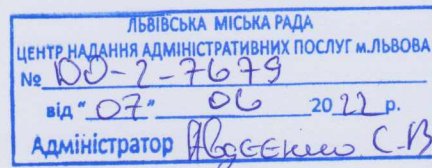 ЛЬВІВСЬКА МІСЬКА РАДА
ЦЕНТР НАДАННЯ АДМІНІСТРАТИВНИХ ПОСЛУГ м.ЛЬВОВА
№ ДО-2-7679
від "07" 06 2022 р.
Адміністратор Авдєєнко С.В